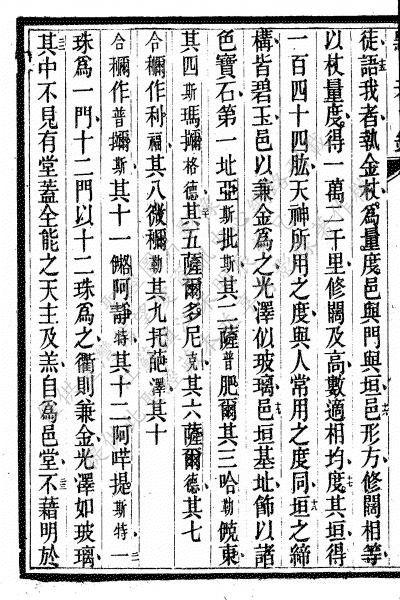 徒語我者執金杖爲量度邑與門與垣邑形方修闊相等
以杖量度得一萬二千里修闊及高數適相均度其垣得
一百四十四肱天神所用之度與人常用之度同垣之締
構皆碧玉邑以兼金爲之光澤似玻璃邑垣基址飾以諸
色寶石第一址亞斯批斯其二薩普肥爾其三哈勒
其四斯瑪擲格德其五薩爾多尼克其六薩爾德其七
合穪作利福其八微穪勒其九托葩澤其十
合穪作普擲斯其十一阿靜特其十二阿咩提斯特一
珠爲一門十二門以十二珠爲之衢則兼金光澤如玻璃
其中不見有堂蓋全能之天主及羔自爲邑堂不藉明於